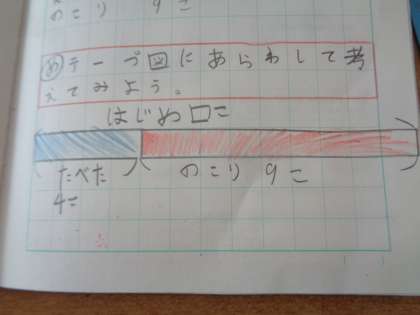 のこり 9こ
めテープ図にあらわして考
えてみよう。
はじめ□こ
たべた のこり 9こ
4こ